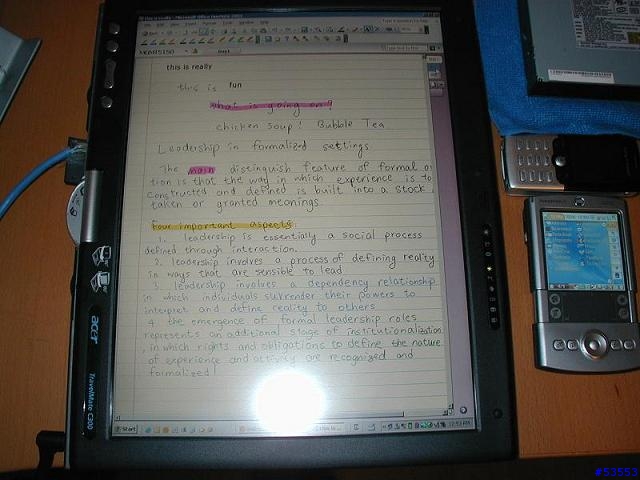 this is really
this is fun
what is going on?
chicken soup! Bubble Tea
Leadership in formalized settings
The main distinguish feature of formal
tion is that the way in which experience is to
constructed and defined is built into a stock
taken or granted meanings
Four important aspects:
1. leadership is essentially a social process
defined through interaction.
2. leadership involves a process of defining reality
in ways that are sensible to lead
3. leadership involves a dependency relationship
in which individuals surrender their powers to
interpret and define reality to others
4 the emergence of formal leadership roles
represents an additional stage of institutionalization
in which rights and obligations to define the nature
of experience and activity are recognized and
formalized!
Start
acer
TravelMate C300
#53553